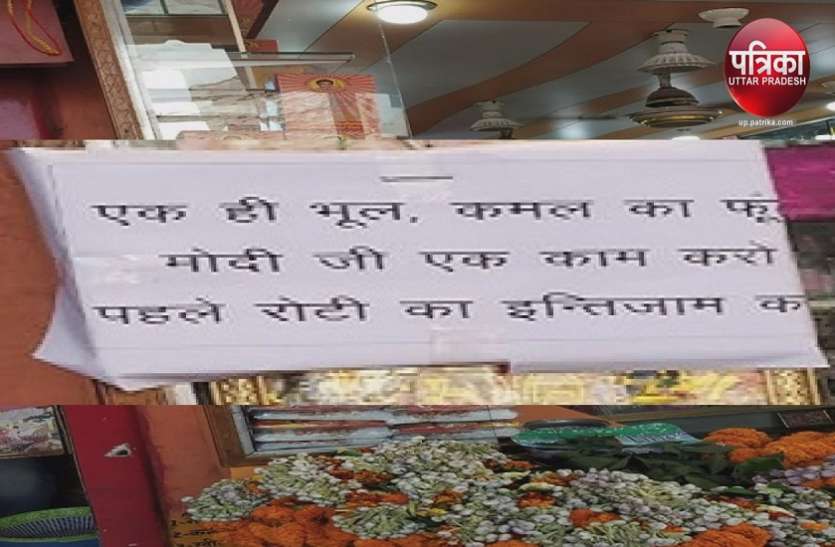 पत्रिका
UTTAR PRADESH
up.patrika.com
एक ही भूल, कमल का
मोदी जी एक काम करो
पहले रोटी का इन्तिजाम